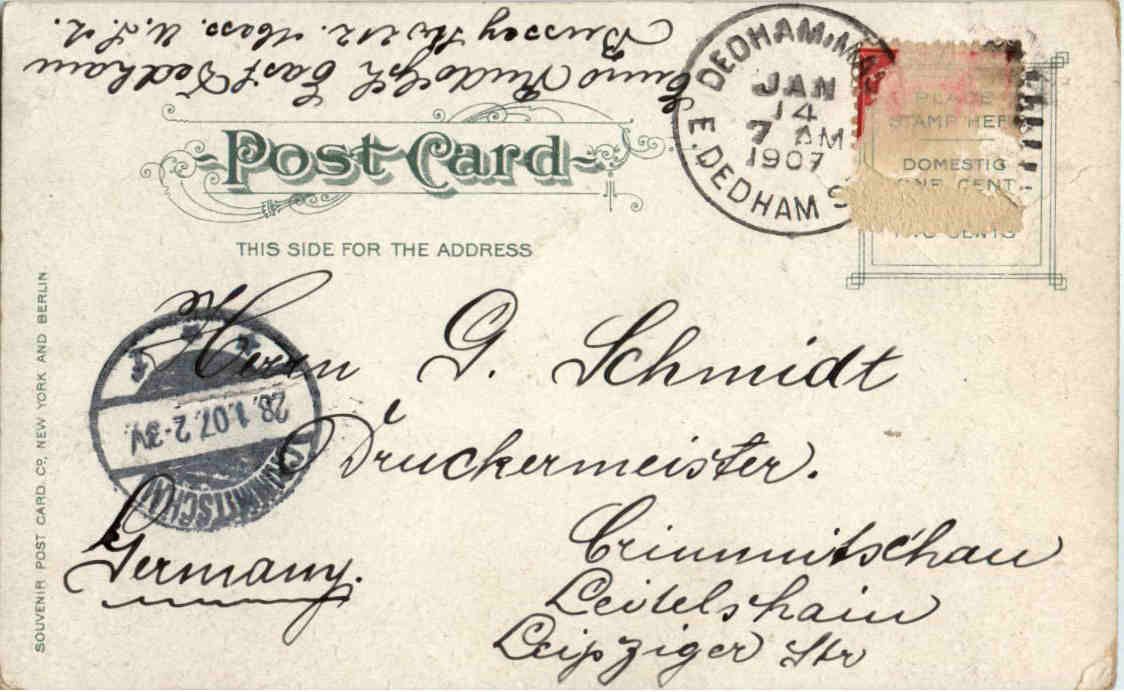 Bruno Rudolph East Dedham
Bussey Str 212. Mass. U.S.A.
Post Card
THIS SIDE FOR THE ADDRESS
DEDHAM, MASS
JAN
14
7 AM
1907
E. DEDHAM S
PLACE
STAMP HERE
DOMESTIC
ONE CENT
TWO CENTS
Herrn G. Schmidt
Druckermeister.
Crimmitschau
Leitelshain
Leipziger Str
Germany.
28.1.07. 2-3V.
CRIMMITSCHAU
SOUVENIR POST CARD. CO, NEW YORK AND BERLIN